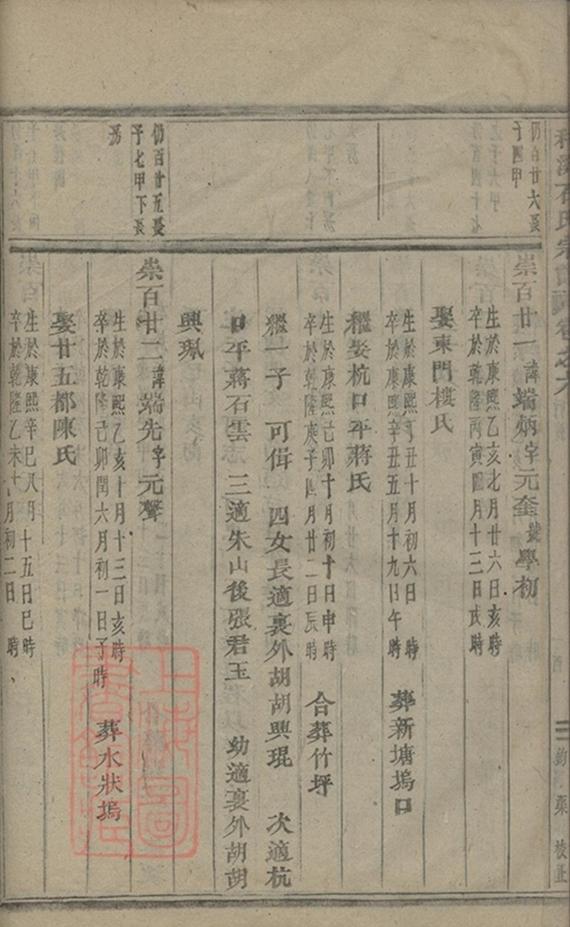 石氏宗譜卷之六
校正
仍百廿六長
子四甲
崇百廿一諱端炳字元奎號學初
生於康熙乙亥七月廿六日亥時
卒於乾隆丙寅四月十三日戌時
娶東門樓氏
生於康熙丁丑十月初六日 時
卒於康熙辛丑五月十九日午時 葬新塘塢口
繼娶杭口平蔣氏
生於康熙己卯十月初十日申時
卒於乾隆庚子四月廿二日辰時 合葬竹坪
繼一子 可偮 四女長適裏外胡胡興琨 次適杭
口平蔣石雲 三適朱山後張君玉 幼適裏外胡胡
興珮
仍百廿五長
子七甲下長
房
崇百廿二諱端先字元聲
生於康熙乙亥十月十三日亥時
卒於乾隆己卯閏六月初一日子時 葬水狀塢
娶廿五都陳氏
生於康熙辛巳八月十五日巳時
卒於乾隆乙未 月初二日 時